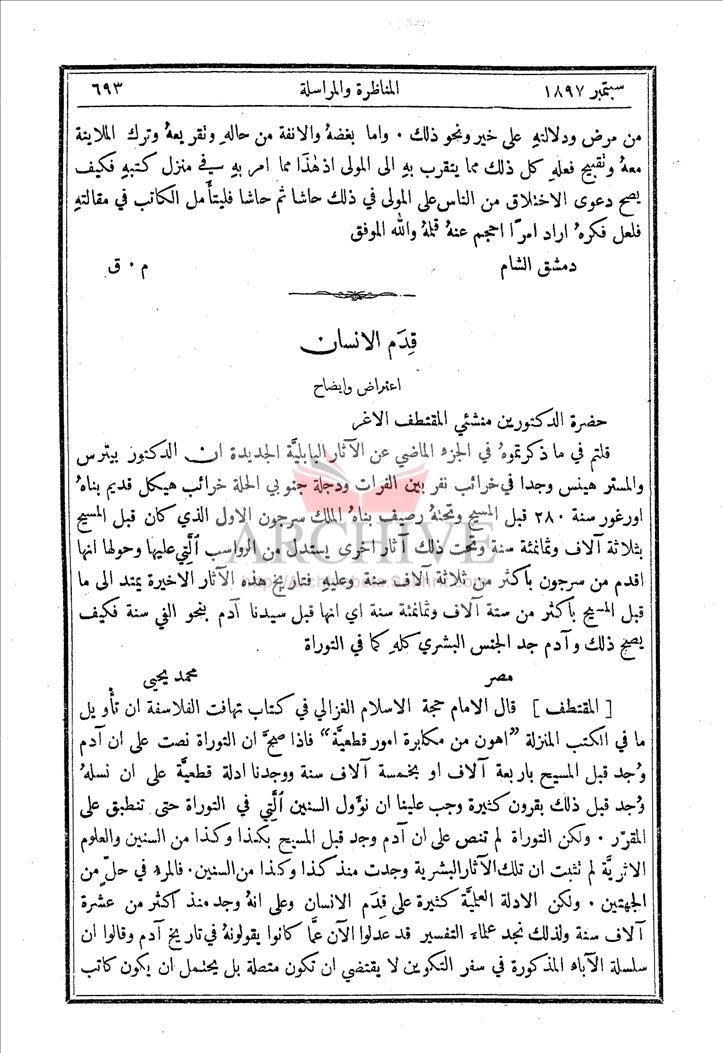 سبتمبر ١٨٩٧
المناظرة والمراسلة
٦٩٣
من مرض ودلالته على خير ونحو ذلك ٠ واما بغضه والانفة من حاله وتقريعه وترك الملاينة
معه وتقبيح فعله كل ذلك مما يتقرب به الى المولى اذ هذا مما امر به في منزل كتبه فكيف
يصح دعوى الاختلاق من الناس على المولى في ذلك حاشا ثم حاشا فليتأمل الكاتب في مقالته
فلعل فكره اراد امرًا احجم عنه قلمه والله الموفق
دمشق الشام
م ٠ ق
قِدَم الانسان
اعتراض وايضاح
حضرة الدكتورين منشئي المقتطف الاغر
قلتم في ما ذكرتموه في الجزء الماضي عن الآثار البابليَّة الجديدة ان الدكتور بيترس
والمستر هينس وجدا في خرائب نفر بين الفرات ودجلة جنوبي الحلة خرائب هيكل قديم بناه
اورغور سنة ٢٨٠ قبل المسيح وتحته رصيف بناه الملك سرجون الاول الذي كان قبل المسيح
بثلاثة آلاف وثمانمئة سنة وتحت ذلك آثار اخرى يستدل من الرواسب الَّتي عليها وحولها انها
اقدم من سرجون بأكثر من ثلاثة آلاف سنة وعليه فتاريخ هذه الآثار الاخيرة يمتد الى ما
قبل المسيح بأكثر من ستة آلاف وثمانمئة سنة اي انها قبل سيدنا آدم بنحو الفي سنة فكيف
يصح ذلك وآدم جد الجنس البشري كله كما في التوراة
مصر
محمد يحيى
[ المقتطف ] قال الامام حجة الاسلام الغزالي في كتاب تهافت الفلاسفة ان تأويل
ما في الكتب المنزلة "اهون من مكابرة امور قطعيَّة" فاذا صحَّ ان التوراة نصت على ان آدم
وُجد قبل المسيح باربعة آلاف او بخمسة آلاف سنة ووجدنا ادلة قطعيَّة على ان نسله
وُجد قبل ذلك بقرون كثيرة وجب علينا ان نؤَوّل السنين الَّتي في التوراة حتى تنطبق على
المقرَّر ٠ ولكن التوراة لم تنص على ان آدم وجد قبل المسيح بكذا وكذا من السنين والعلوم
الاثريَّة لم تثبت ان تلك الآثار البشرية وجدت منذ كذا وكذا من السنين ٠ فالمرء في حلّ من
الجهتين ٠ ولكن الادلة العلميَّة كثيرة على قِدَم الانسان وعلى انه وجد منذ اكثر من عشرة
آلاف سنة ولذلك نجد علماء التفسير قد عدلوا الآن عمَّا كانوا يقولونه في تاريخ آدم وقالوا ان
سلسلة الآباء المذكورة في سفر التكوين لا يقتضي ان تكون متصلة بل يحتمل ان يكون كاتب
ARCHIVE